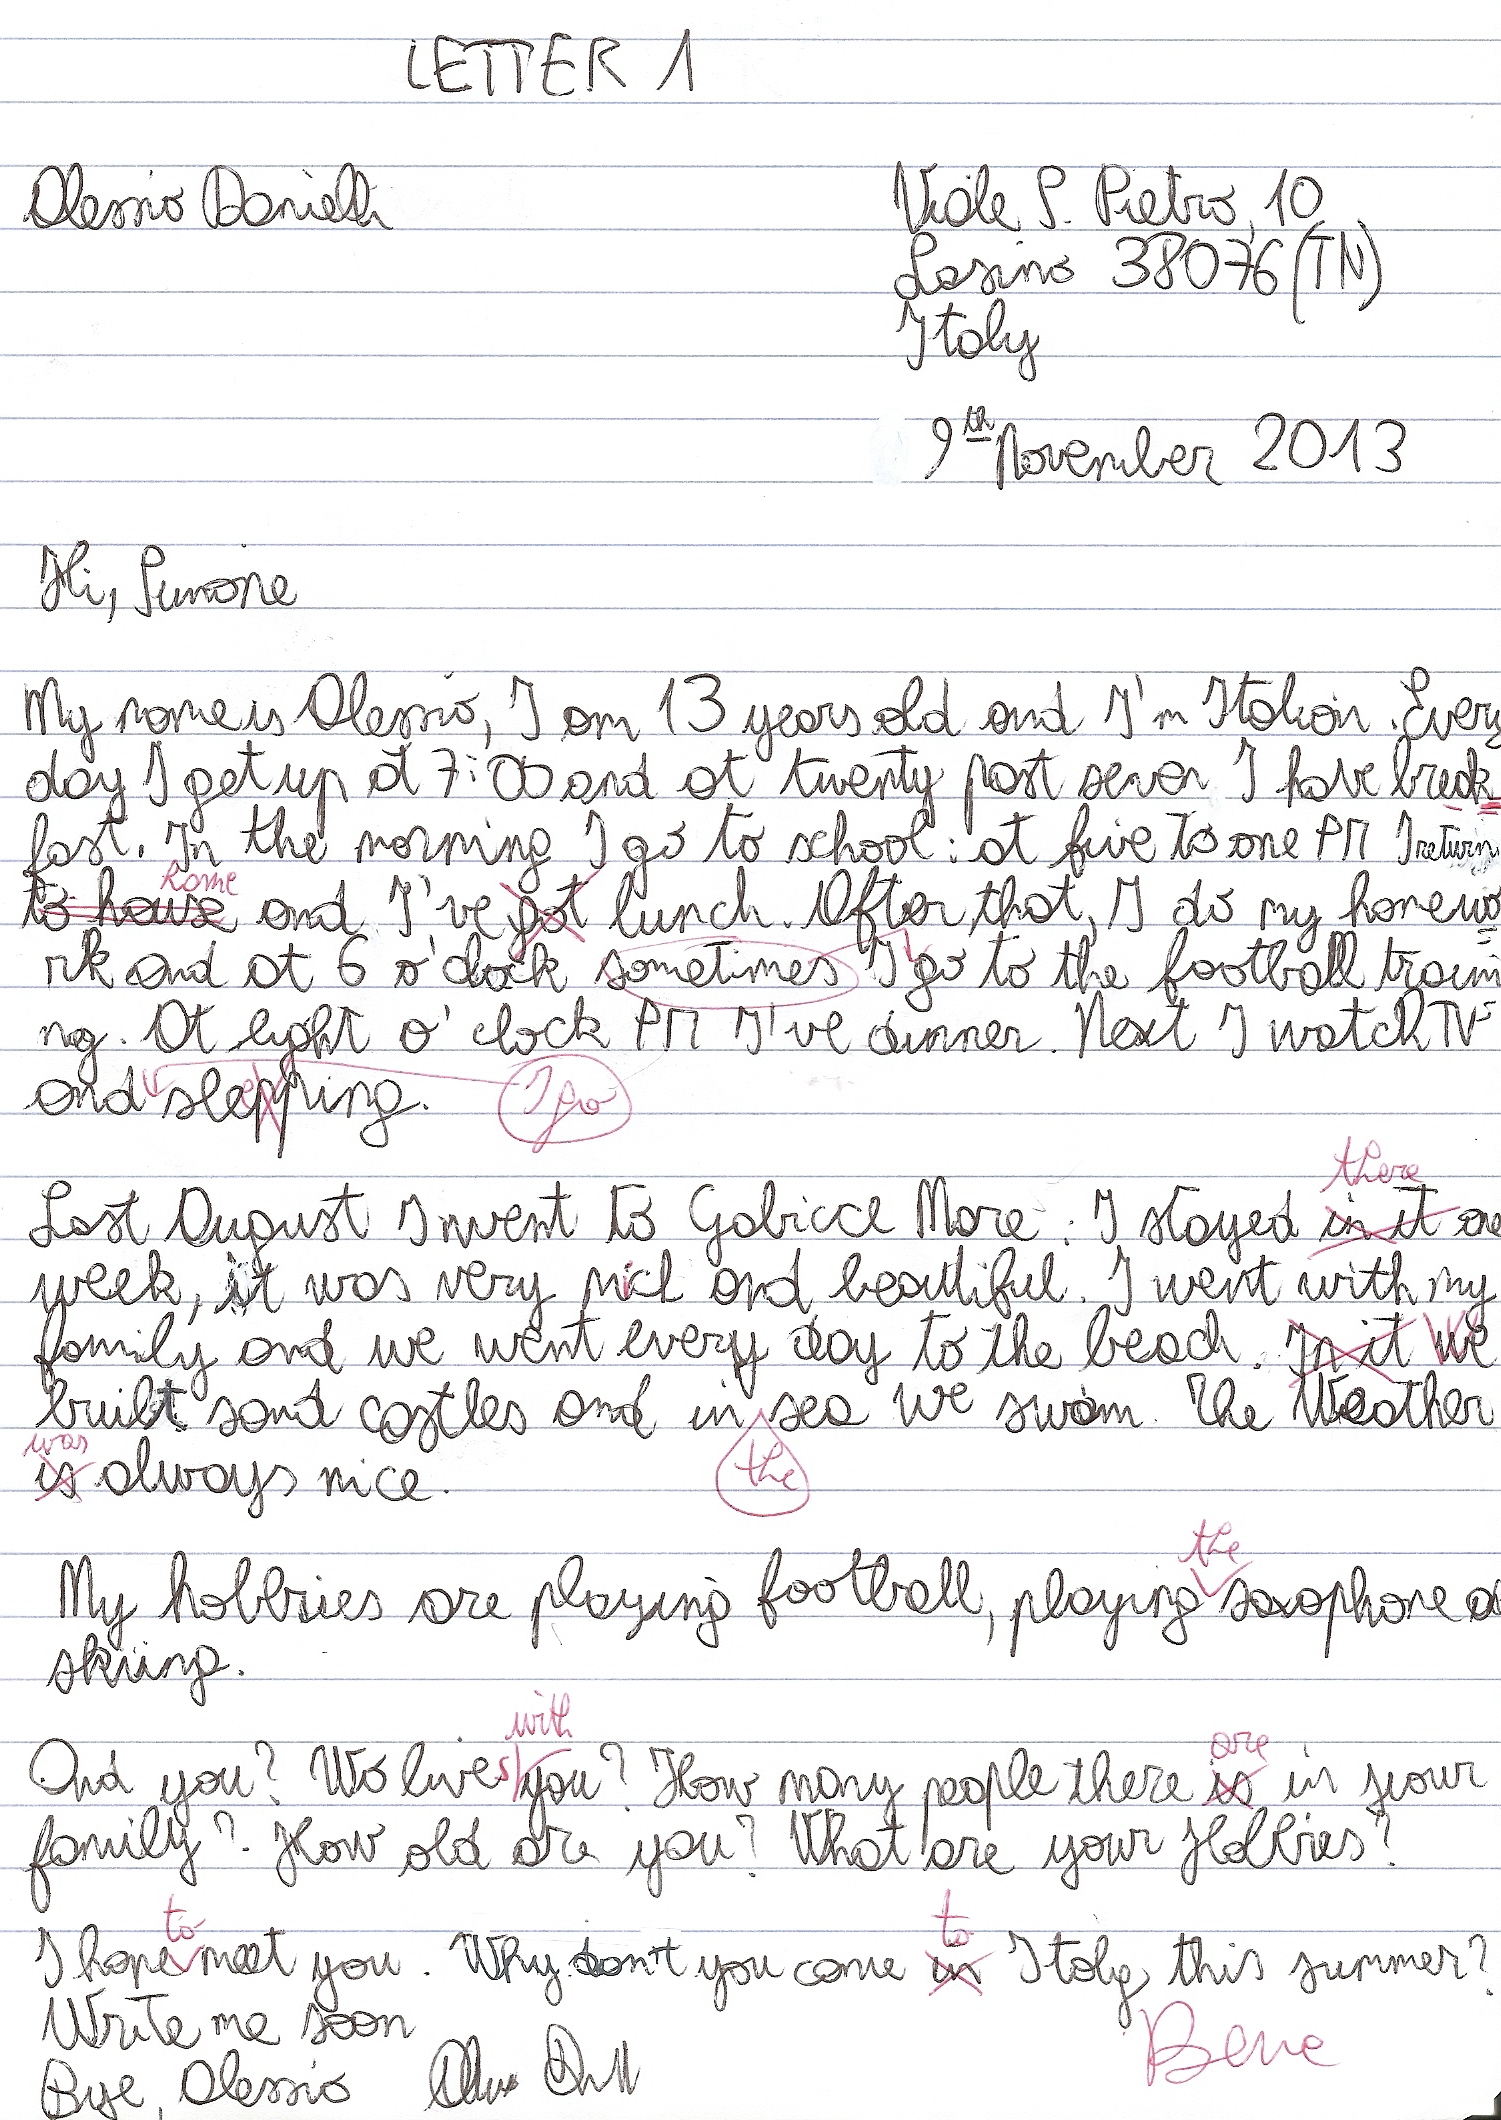 LETTER 1
Alessio Danielli
Viale S. Pietro, 10
Lasino 38076 (TN)
Italy
9th November 2013
Hi, Simone
My name is Alessio, I am 13 years old and I'm Italian. Every
day I get up at 7:00 and at twenty past seven I have break
fast. In the morning I go to school: at five to one PM I return
home
to house and I've got lunch. After that, I do my homewo
rk and at 6 o'clock sometimes I go to the football traini
ng. At eight o'clock PM I've dinner. Next I watch TV
and slepping. I go
there
Last August I went to Gabicce Mare: I stayed in it one
week, it was very nice and beautiful. I went with my
family and we went every day to the beach. In it we
built sand castles and in sea we swam. The Weather
was
is always nice. the
the
My hobbies are playing football, playing saxophone a
skiing.
with are
And you? Wo lives you? How many people there is in your
family? How old are you? What are your Hobbies?
to to
I hope meet you. Why don't you come in Italy this summer?
Write me soon
Bene
Bye, Alessio